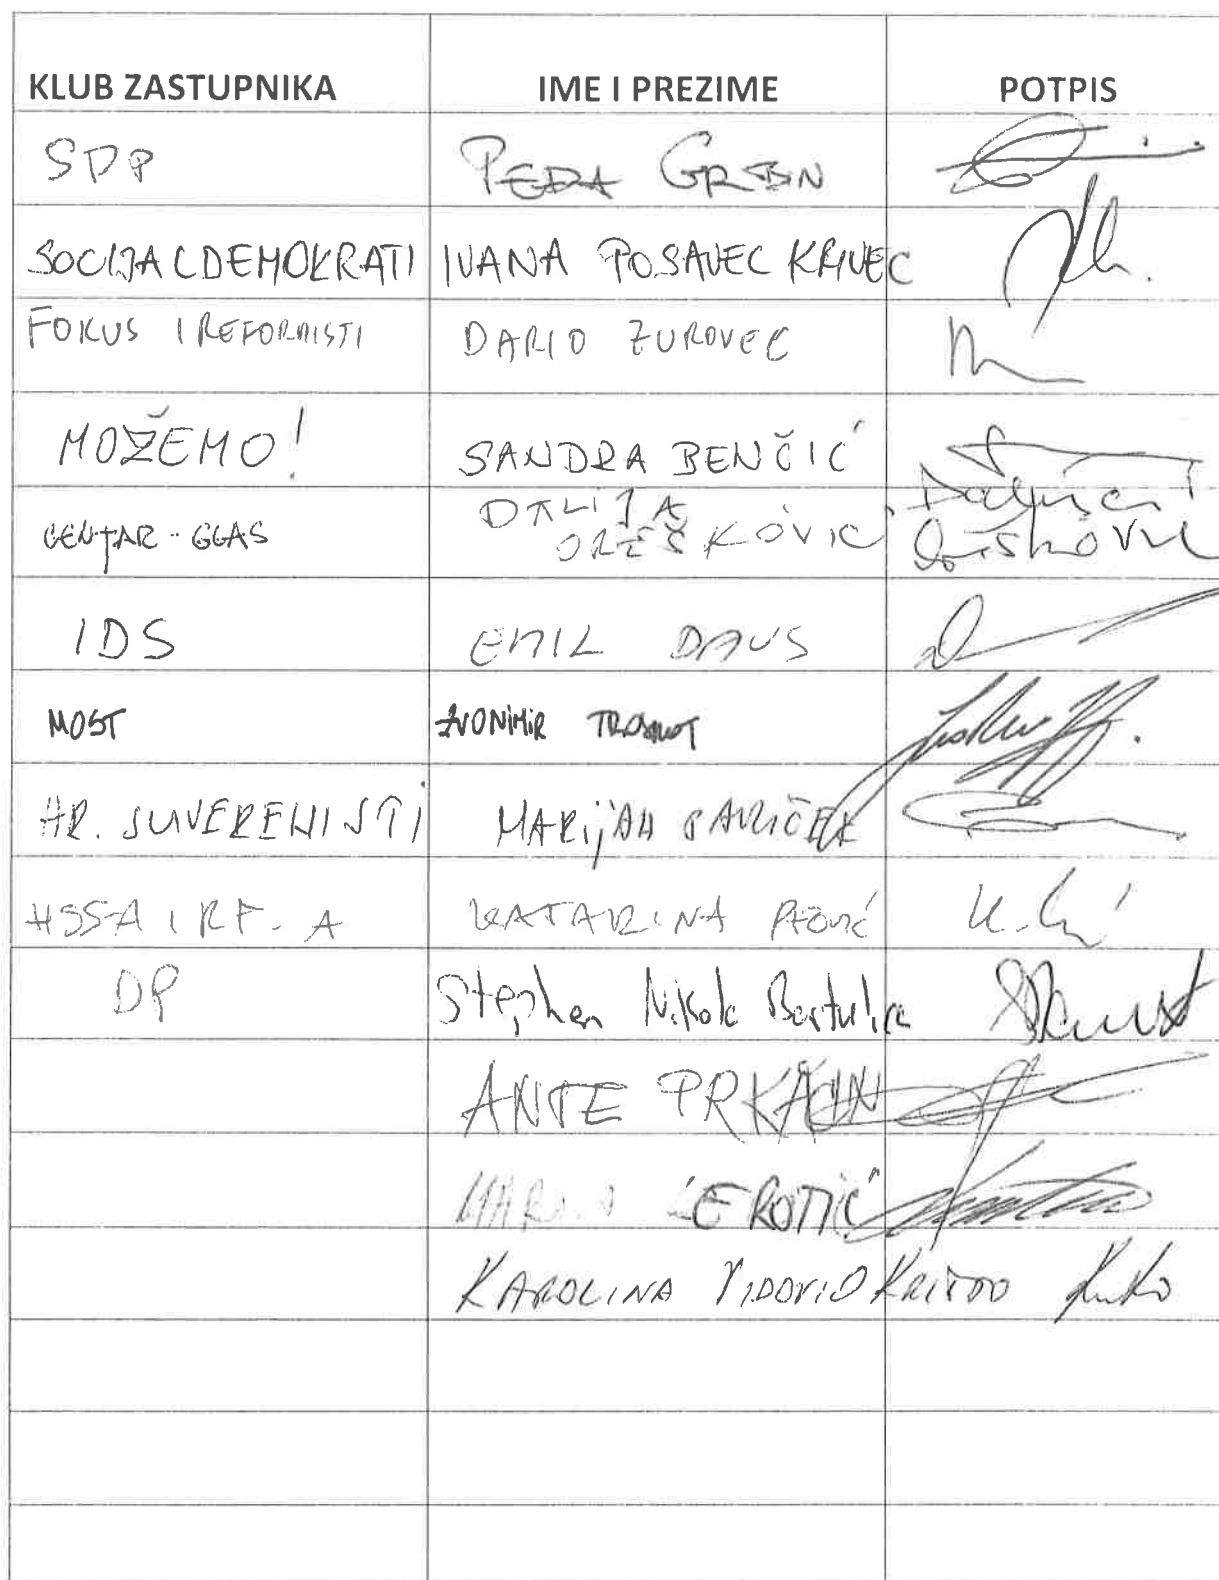 KLUB ZASTUPNIKA IME I PREZIME POTPIS
SDP PEĐA GRBIN
SOCIJALDEMOKRATI IVANA POSAVEC KRIVEC
FOKUS I REFORMISTI DARIO ZUROVEC
MOŽEMO! SANDRA BENČIĆ
CENTAR - GLAS DALIJA OREŠKOVIĆ Dalija Orešković
IDS EMIL DAUS
MOST ZVONIMIR TROSKOT
HR. SUVERENISTI MARIJAN PAVLIČEK
KATARINA PEOVIĆ
DP Stephen Nikola Bartulica
ANTE PRKAČIN
EROTIĆ
KAROLINA VIDOVIĆ KRIŠTO